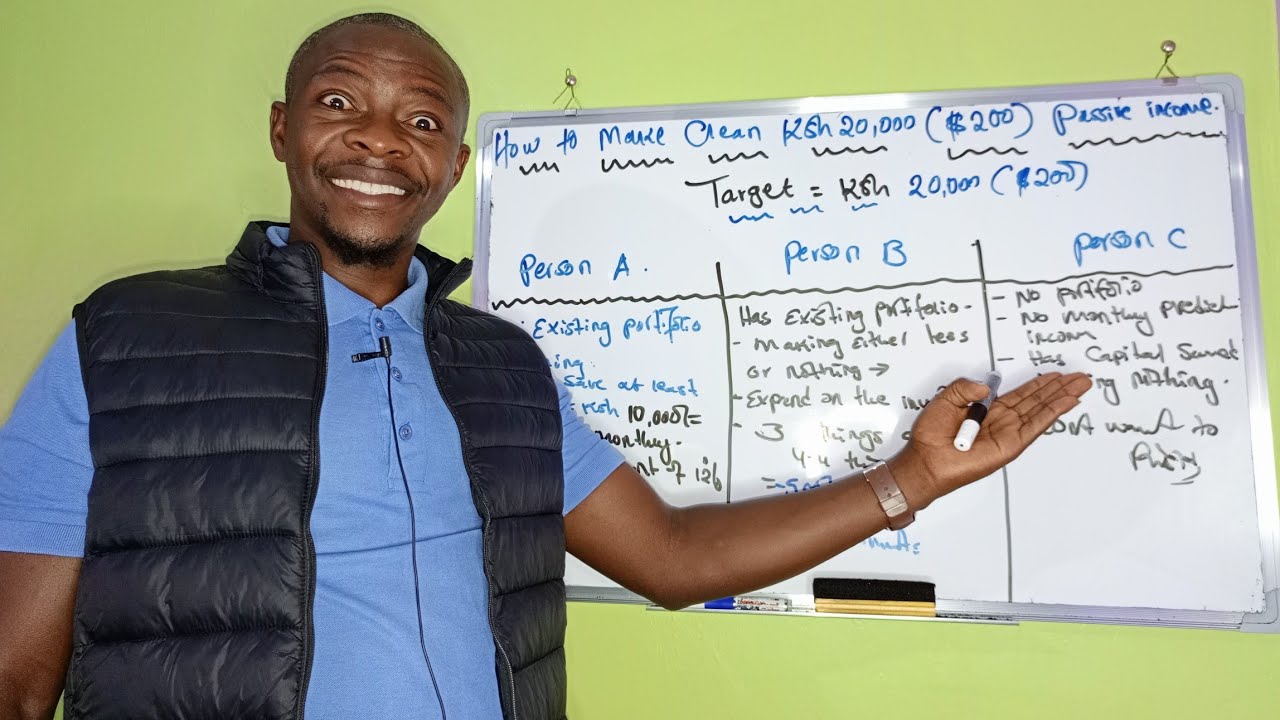 How to Make Clean KSh 20,000 ($200) Passive income.
Target = KSh 20,000 ($200)
Person A.
Existing portfolio
ing.
Save at least
= KSh 10,000/=
monthly.
Person B
Has Existing portfolio -
- Making either less
or nothing →
- Expand on the
- 3 things
4.
Person C
- No portfolio
- No monthly predict
income
- Has Capital
ing nothing.
want to